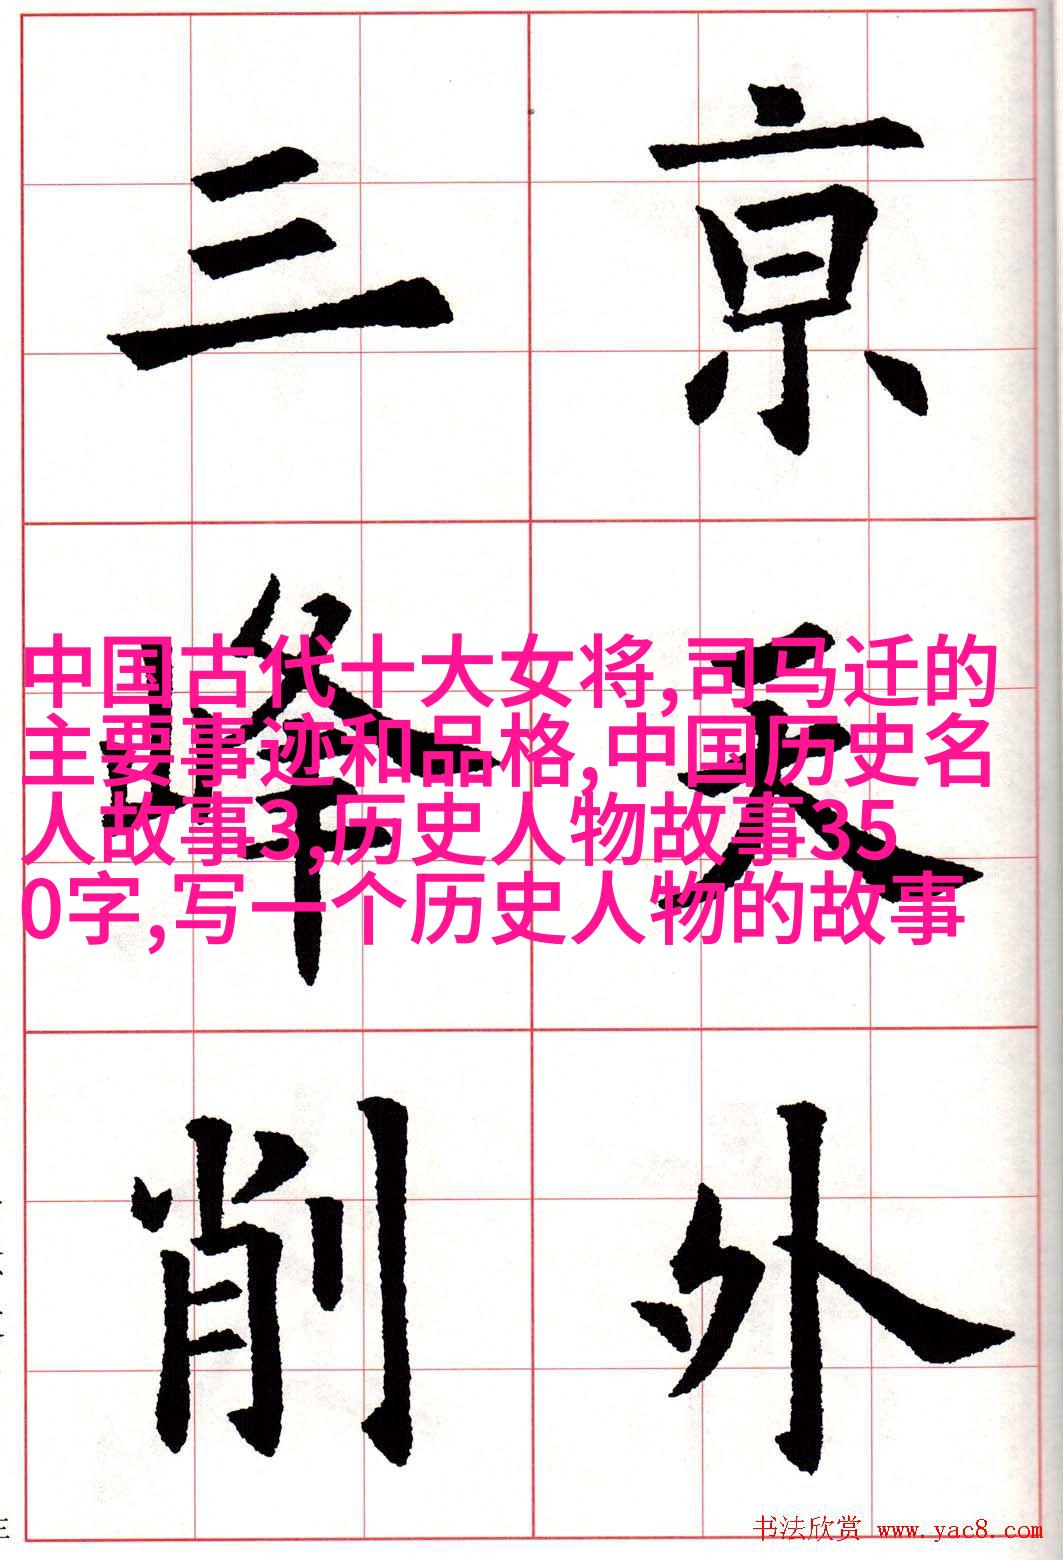 亰天外
三峰削
中国古代十大女将,司马迁的
主要事迹和品格,中国历史名
人故事3,历史人物故事35
0字,写一个历史人物的故事
书法欣赏 www.yac8.com